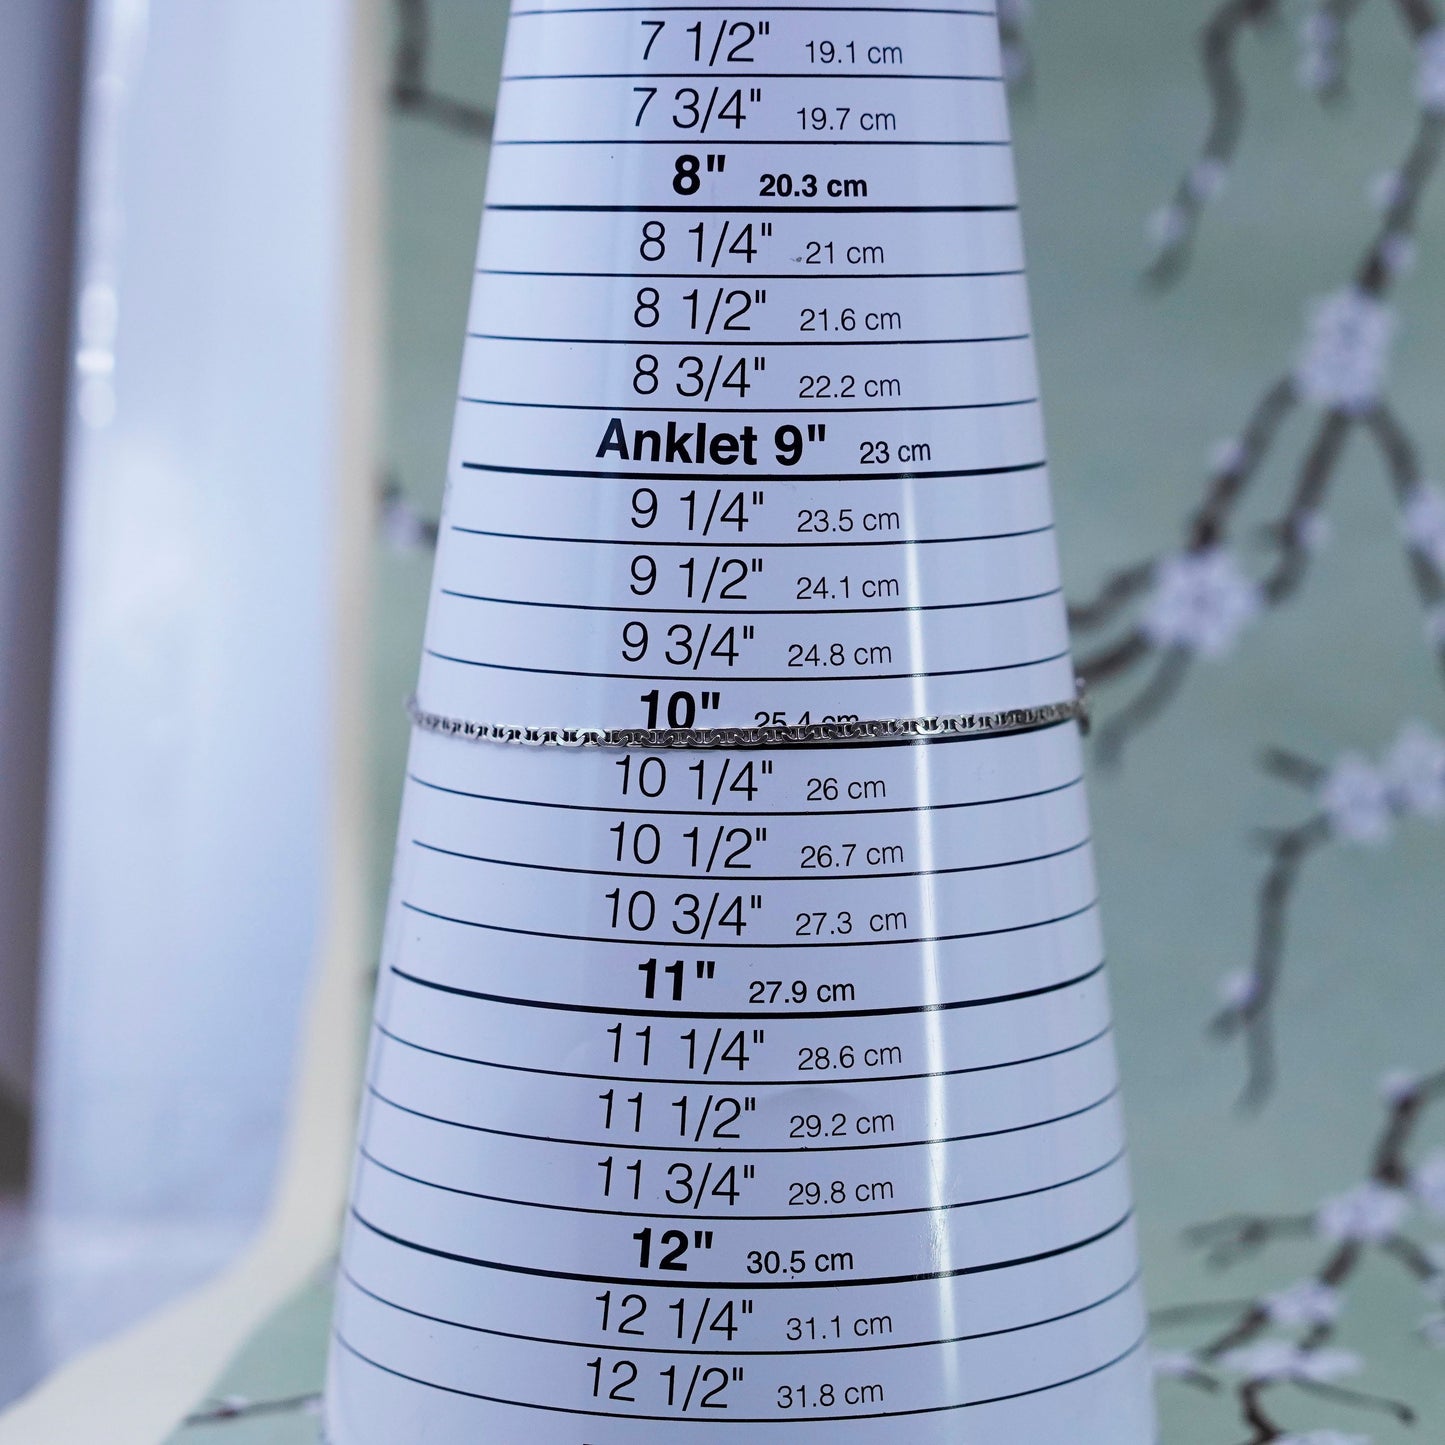 7 1/2" 19.1 cm
7 3/4" 19.7 cm
8" 20.3 cm
8 1/4" 21 cm
8 1/2" 21.6 cm
8 3/4" 22.2 cm
Anklet 9" 23 cm
9 1/4" 23.5 cm
9 1/2" 24.1 cm
9 3/4" 24.8 cm
10" 25.4 cm
10 1/4" 26 cm
10 1/2" 26.7 cm
10 3/4" 27.3 cm
11" 27.9 cm
11 1/4" 28.6 cm
11 1/2" 29.2 cm
11 3/4" 29.8 cm
12" 30.5 cm
12 1/4" 31.1 cm
12 1/2" 31.8 cm